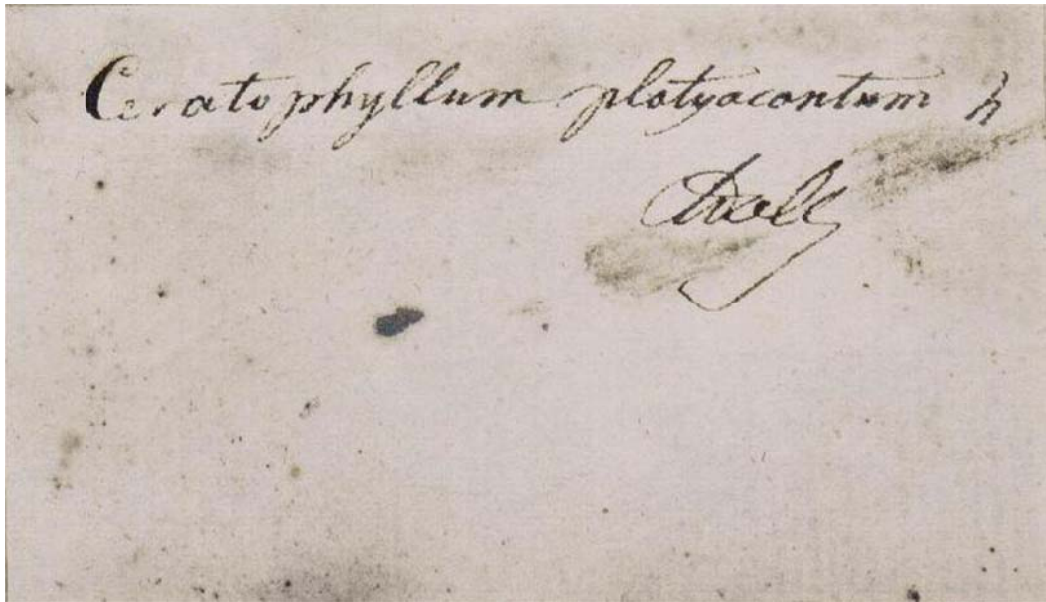 Ceratophyllum platyacantum